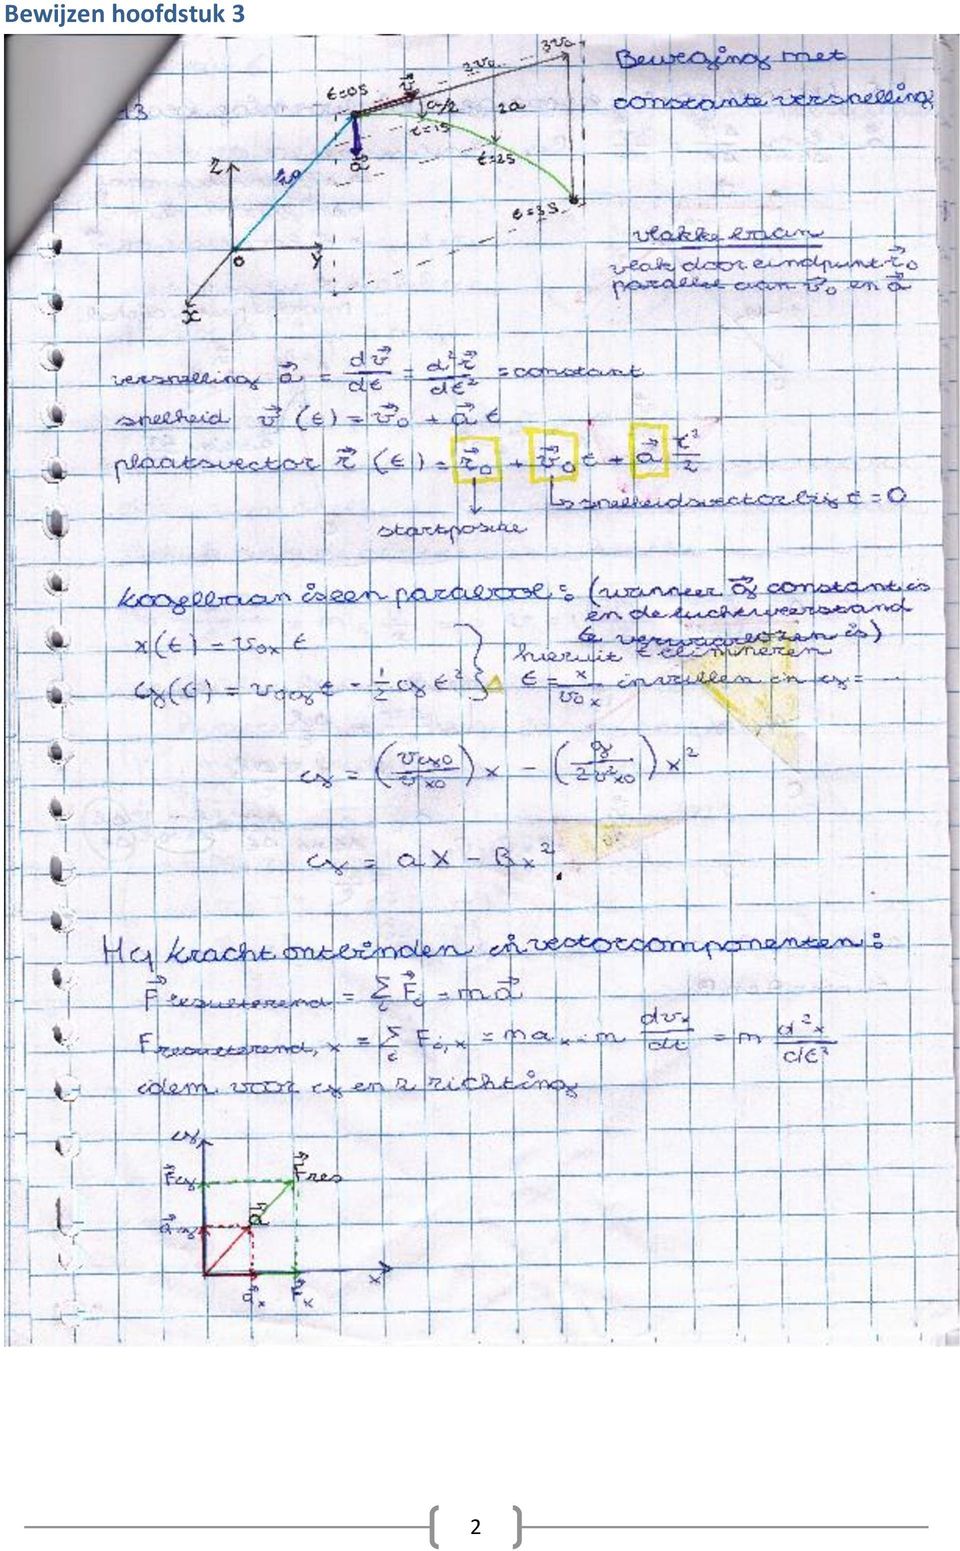 Bewijzen hoofdstuk 3
H3
t=0s
v⃗
2v₀
3v₀
a/2
2a
t=1s
t=2s
t=3s
a⃗
z
r₀
o
y
x
Beweging met
constante versnelling:
vlakke baan
vlak door eindpunt r⃗₀
parallel aan v⃗₀ en a⃗
versnelling a⃗ = dv⃗/dt = d²r⃗/dt² = constant
snelheid v⃗ (t) = v⃗₀ + a⃗ t
plaatsvector r⃗ (t) = r⃗₀ + v⃗₀ t + a⃗ t²/2
↳ snelheidsvector bij t = 0
startpositie
kogelbaan is een parabool: (wanneer g⃗ constant is
en de luchtweerstand
te verwaarlozen is)
x(t) = v₀ₓ t
y(t) = v₀y t - ½ g t²
} hieruit t elimineren
t = x/v₀ₓ invullen in y = ...
y = (vy₀/vx₀) x - (g/2v²x₀) x²
y = ax - Bx²
H4 kracht ontbinden in vectorcomponenten:
F⃗ resulterend = Σᵢ F⃗ᵢ = m a⃗
F resulterend, x = Σᵢ Fᵢ,ₓ = m aₓ = m dvₓ/dt = m d²x/dt²
idem voor y en z richting
y
F⃗y
F⃗res
a⃗
a⃗y
a⃗ₓ
F⃗ₓ
x
2